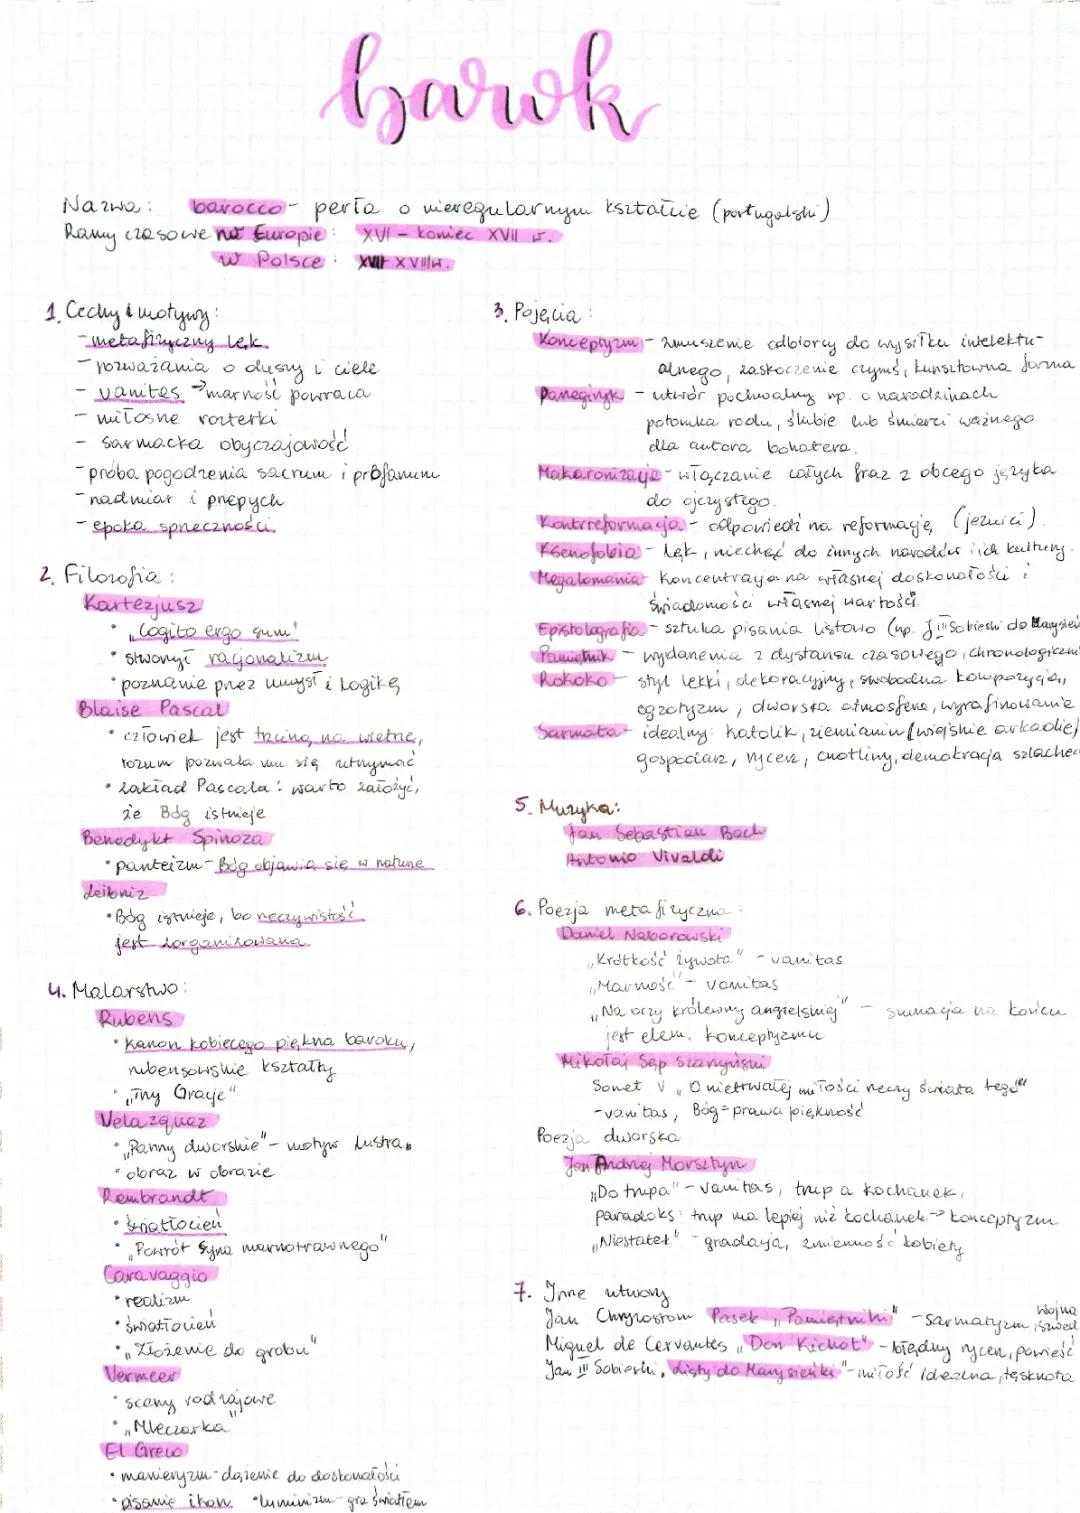 barok
Nazwa: barocco - perła o nieregularnym kształcie (portugalski)
Ramy czasowe na Europie: XVI - koniec XVII w.
w Polsce: XVIII w.
1. Cechy i motywy:
- metafizyczny lęk
- rozważania o duszy i ciele
- vanitas → marność powraca
- miłosne rozterki
- sarmacka obyczajowość
- próba pogodzenia sacrum i profanum
- nadmiar i przepych
- epoka sprzeczności
2. Filozofia:
Kartezjusz
• "Cogito ergo sum"
• stworzył racjonalizm
• poznanie przez umysł i logikę
Blaise Pascal
• człowiek jest trzciną na wietrze,
rozum pozwala mu się utrzymać
• zakład Pascala: warto założyć,
że Bóg istnieje
Benedykt Spinoza
• panteizm - Bóg objawia się w naturze
Leibniz
• Bóg istnieje, bo rzeczywistość
jest zorganizowana
4. Malarstwo:
Rubens
• kanon kobiecego piękna baroku,
rubensowskie kształty
• "Trzy Gracje"
Velazquez
• "Panny dworskie" - motyw lustra
• obraz w obrazie
Rembrandt
• światłocień
• "Powrót syna marnotrawnego"
Caravaggio
• realizm
• światłocień
• "Złożenie do grobu"
Vermeer
• sceny rodzajowe
• "Mleczarka"
El Greco
• manieryzm - dążenie do doskonałości
• pisanie ikon • luminizm - gra światłem
3. Pojęcia:
Konceptyzm - zmuszenie odbiorcy do wysiłku intelektu-
alnego, zaskoczenie czymś, kunsztowna forma
Panegiryk - utwór pochwalny np. o narodzinach
potomka rodu, ślubie lub śmierci ważnego
dla autora bohatera.
Makaronizacja - włączanie całych fraz z obcego języka
do ojczystego.
Kontrreformacja - odpowiedź na reformację (jezuici)
Ksenofobia - lęk, niechęć do innych narodów i ich kultury.
Megalomania - koncentracja na własnej doskonałości i
świadomości własnej wartości.
Epistolografia - sztuka pisania listów (np. J III Sobieski do Marysień
Pamiętnik - wydarzenia z dystansu czasowego, chronologiczni
Rokoko - styl lekki, dekoracyjny, swobodna kompozycja,
egzotyzm, dworska atmosfera, wyrafinowanie
Sarmata - idealny: katolik, ziemianin (wiejskie arkadie)
gospodarz, rycerz, cnotliwy, demokracja szlachec
5. Muzyka:
Jan Sebastian Bach
Antonio Vivaldi
6. Poezja metafizyczna:
Daniel Naborowski
"Krótkość żywota" - vanitas
"Marność" - vanitas
"Na oczy królewny angielskiej" - sumacja na końcu
jest elem. konceptyzmu
Mikołaj Sęp Szarzyński
Sonet V "O nietrwałej miłości rzeczy świata tego"
- vanitas, Bóg = prawa piękność
Poezja dworska
Jan Andrzej Morsztyn
"Do trupa" - vanitas, trup a kochanek,
paradoks: trup ma lepiej niż kochanek → konceptyzm
"Niestatek" - gradacja, zmienność kobiety
7. Inne utwory
Jan Chryzostom Pasek "Pamiętniki" - sarmatyzm, wojna szwed
Miguel de Cervantes "Don Kichot" - błędny rycerz, powieść
Jan III Sobieski, "Listy do Marysieńki" - miłość idealna, tęsknota